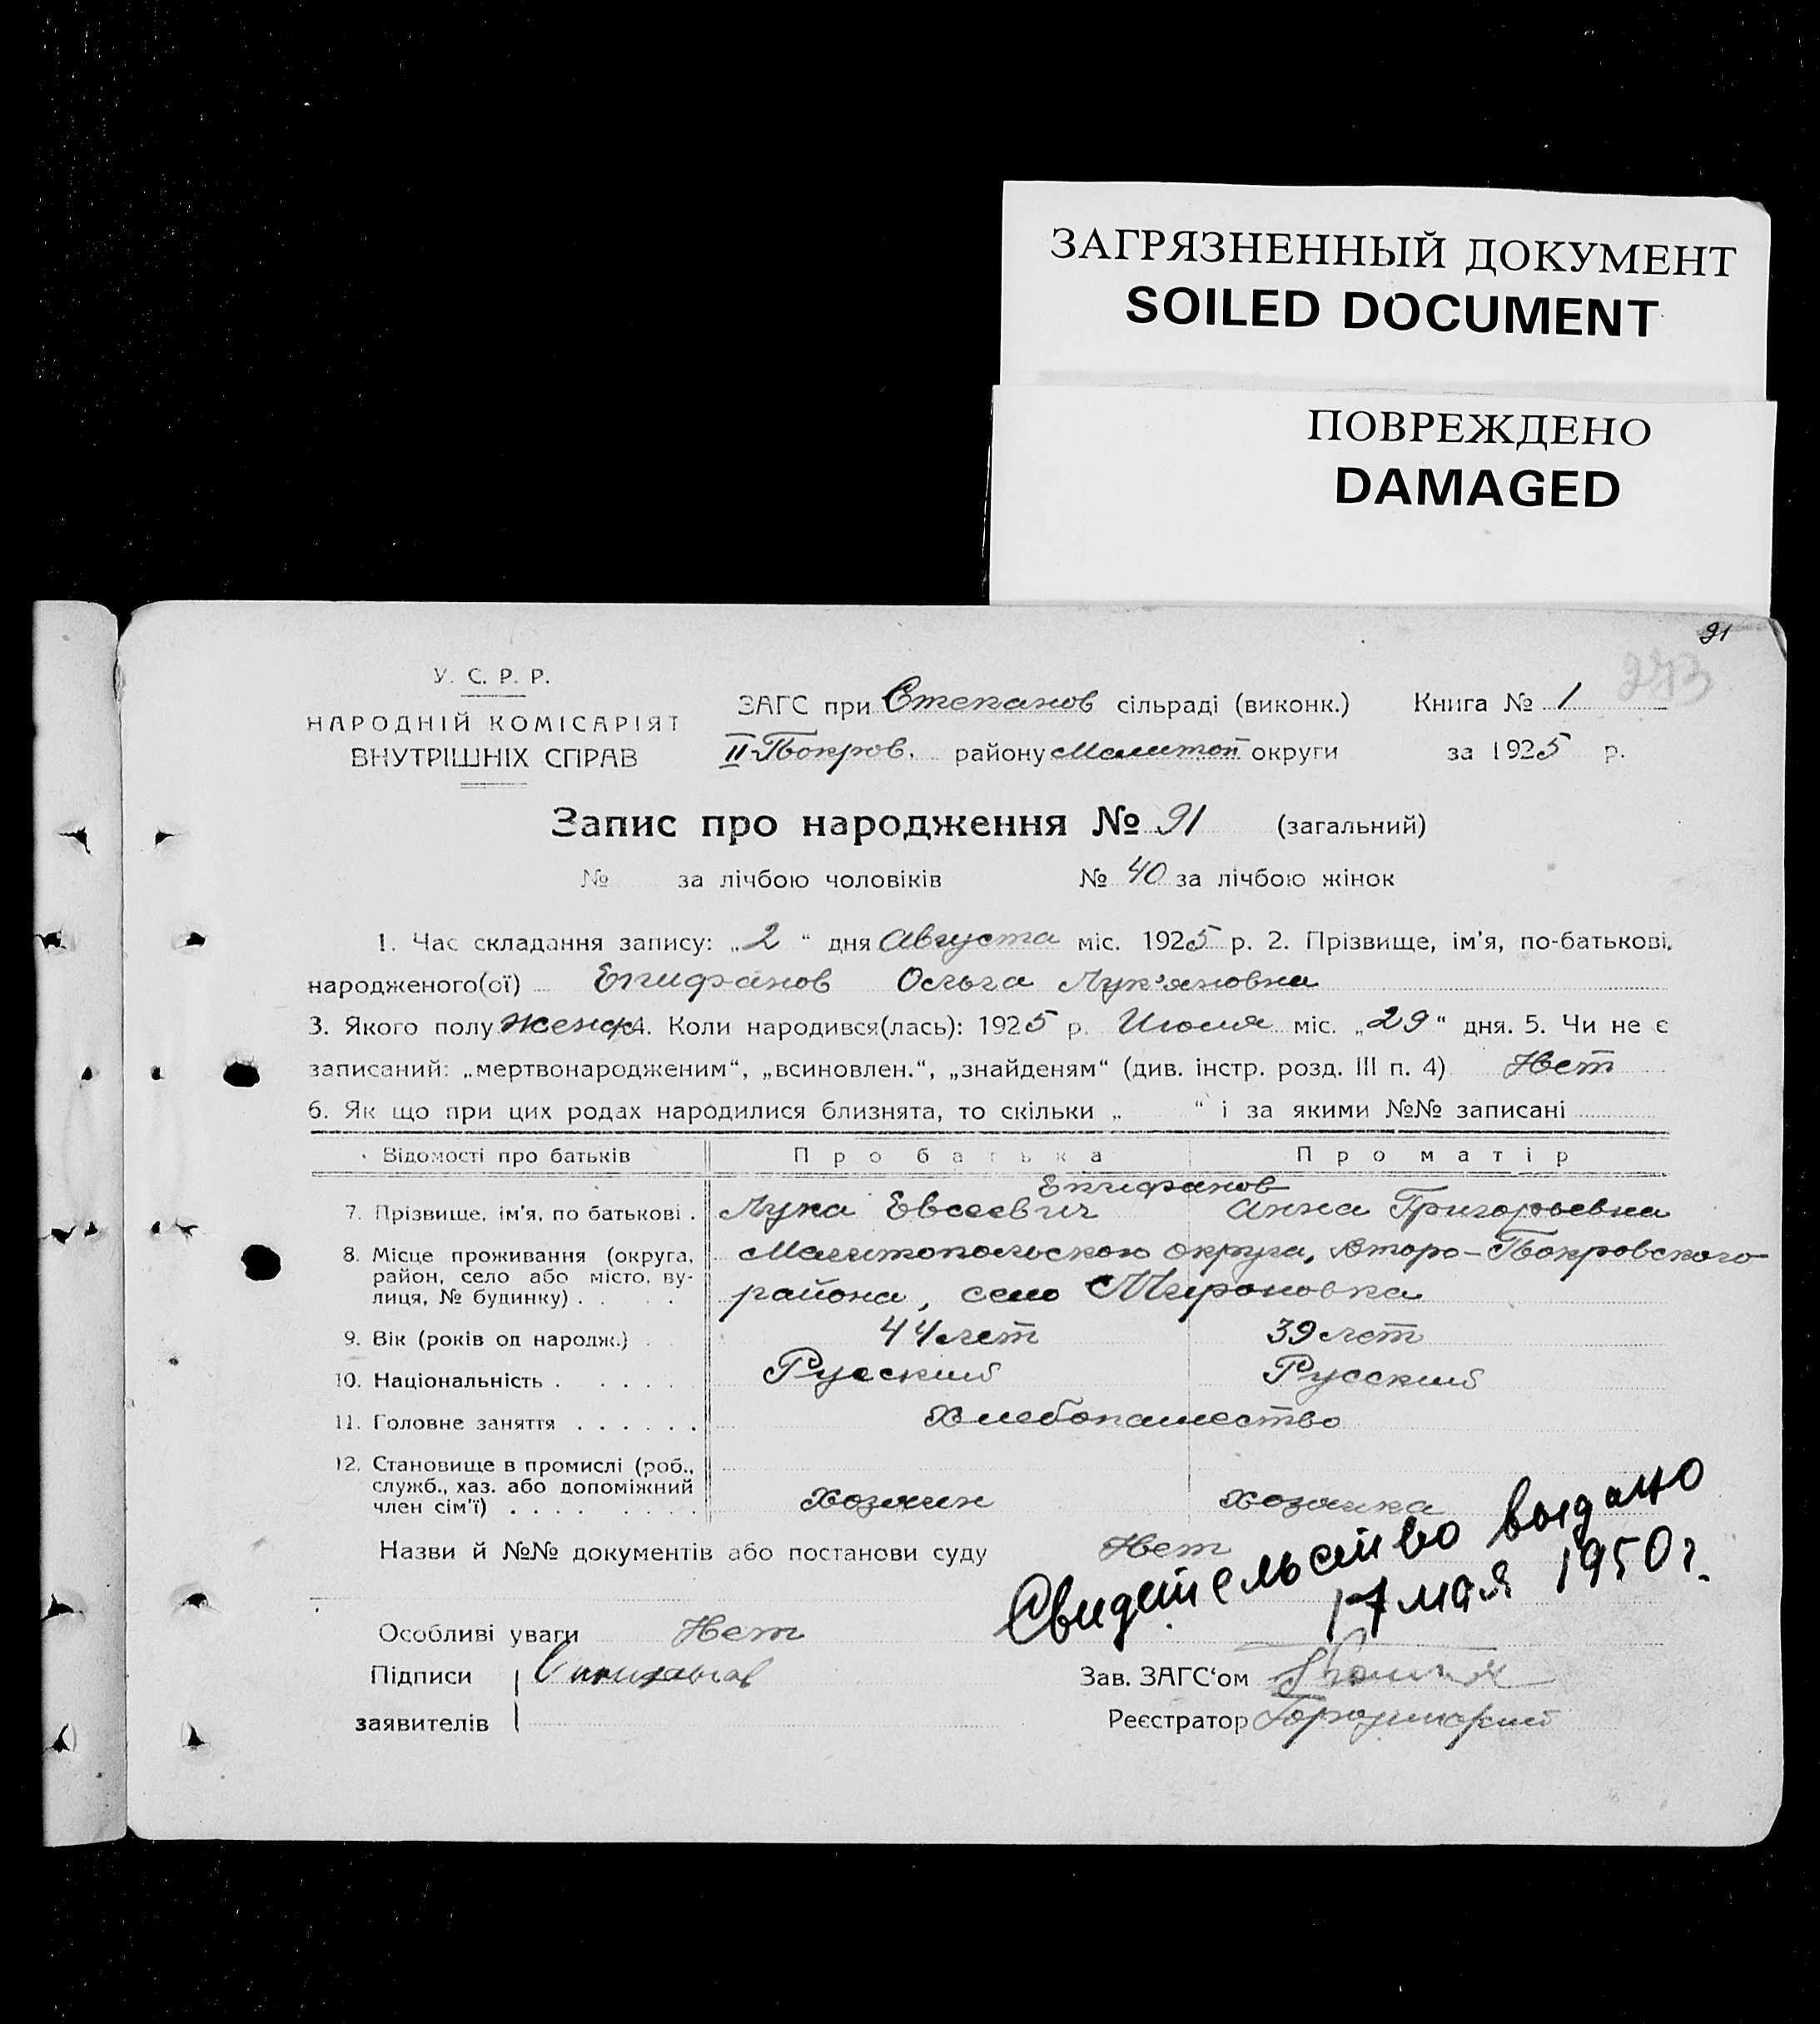 ЗАГРЯЗНЕННЫЙ ДОКУМЕНТ
SOILED DOCUMENT
ПОВРЕЖДЕНО
DAMAGED
91
273
У. С. Р. Р.
НАРОДНІЙ КОМІСАРІЯТ
ВНУТРІШНІХ СПРАВ
ЗАГС при Степанов сільраді (виконк.) Книга № 1
II-Покров. району Мелитоп округи за 1925 р.
Запис про народження № 91 (загальний)
№ за лічбою чоловіків № 40 за лічбою жінок
1. Час складання запису: „2“ дня Августа міс. 1925 р. 2. Прізвище, ім'я, по-батькові,
народженого(ої) Епифанов Ольга Лук'яновна
3. Якого полу Женск 4. Коли народився(лась): 1925 р. Июля міс. „29“ дня. 5. Чи не є
записаний: „мертвонародженим“, „всиновлен.“, „знайденям“ (див. інстр. розд. III п. 4) Нет
6. Як що при цих родах народилися близнята, то скільки „ “ і за якими №№ записані
Відомості про батьків Про батька Про матір
Епифанов
7. Прізвище, ім'я, по батькові . Лука Евсеевич Анна Григорьевна
8. Місце проживання (округа, Мелитопольского округа, Второ-Покровского
район, село або місто, ву-
лиця, № будинку) . . . района, село Мироновка
9. Вік (років од народж.) . 44 лет 39 лет
10. Національність . . . . . Русский Русский
11. Головне заняття . . . . . . Хлебопашество
12. Становище в промислі (роб.,
служб., хаз. або допоміжний
член сім'ї) . . . . . . . . Хозяин Хозяйка
Назви й №№ документів або постанови суду Нет
Свидетельство выдано
17 мая 1950 г.
Особливі уваги Нет
Підписи Епифанов Зав. ЗАГС'ом
заявителів Реєстратор